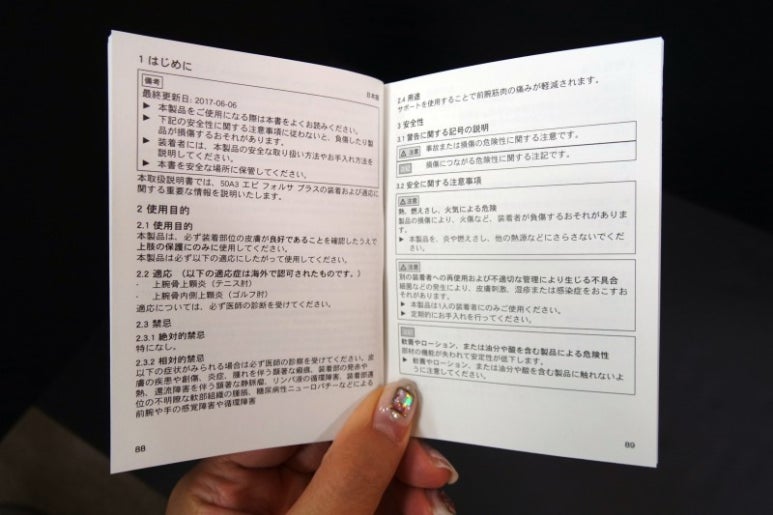 1 はじめに
備考
日本語
最終更新日: 2017-06-06
▶ 本製品をご使用になる際は本書をよくお読みください。
▶ 下記の安全性に関する注意事項に従わないと、負傷したり製
品が損傷するおそれがあります。
▶ 装着者には、本製品の安全な取り扱い方法やお手入れ方法を
説明してください。
▶ 本書を安全な場所に保管してください。
本取扱説明書では、50A3 エピ フォルサ プラスの装着および適応に
関する重要な情報を説明いたします。
2 使用目的
2.1 使用目的
本製品は、必ず装着部位の皮膚が良好であることを確認したうえで
上肢の保護にのみに使用してください。
本製品は必ず以下の適応にしたがって使用してください。
2.2 適応 (以下の適応症は海外で認可されたものです。)
· 上腕骨上顆炎(テニス肘)
· 上腕骨内側上顆炎(ゴルフ肘)
適応については、必ず医師の診断を受けてください。
2.3 禁忌
2.3.1 絶対的禁忌
特になし。
2.3.2 相対的禁忌
以下の症状がみられる場合は必ず医師の診察を受けてください。皮
膚の疾患や創傷、炎症、腫れを伴う顕著な瘢痕、装着部の発赤や
熱、還流障害を伴う顕著な静脈瘤、リンパ液の循環障害、装着部遠
位の不明瞭な軟部組織の腫脹、糖尿病性ニューロパチーなどによる
前腕や手の感覚障害や循環障害
88
2.4 用途
サポートを使用することで前腕筋肉の痛みが軽減されます。
3 安全性
3.1 警告に関する記号の説明
⚠ 注意 事故または損傷の危険性に関する注意です。
注記 損傷につながる危険性に関する注記です。
3.2 安全に関する注意事項
⚠ 注意
熱、燃えさし、火気による危険
製品の損傷により、火傷など、装着者が負傷するおそれがありま
す。
▶ 本製品を、炎や燃えさし、他の熱源などにさらさないでくだ
さい。
⚠ 注意
別の装着者への再使用および不適切な管理により生じる不具合
細菌などの発生により、皮膚刺激、湿疹または感染症をおこすお
それがあります。
▶ 本製品は1人の装着者にのみご使用ください。
▶ 定期的にお手入れを行ってください。
注記
軟膏やローション、または油分や酸を含む製品による危険性
部材の機能が失われて安定性が低下します。
▶ 軟膏やローション、または油分や酸を含む製品に触れないよ
うに注意してください。
89